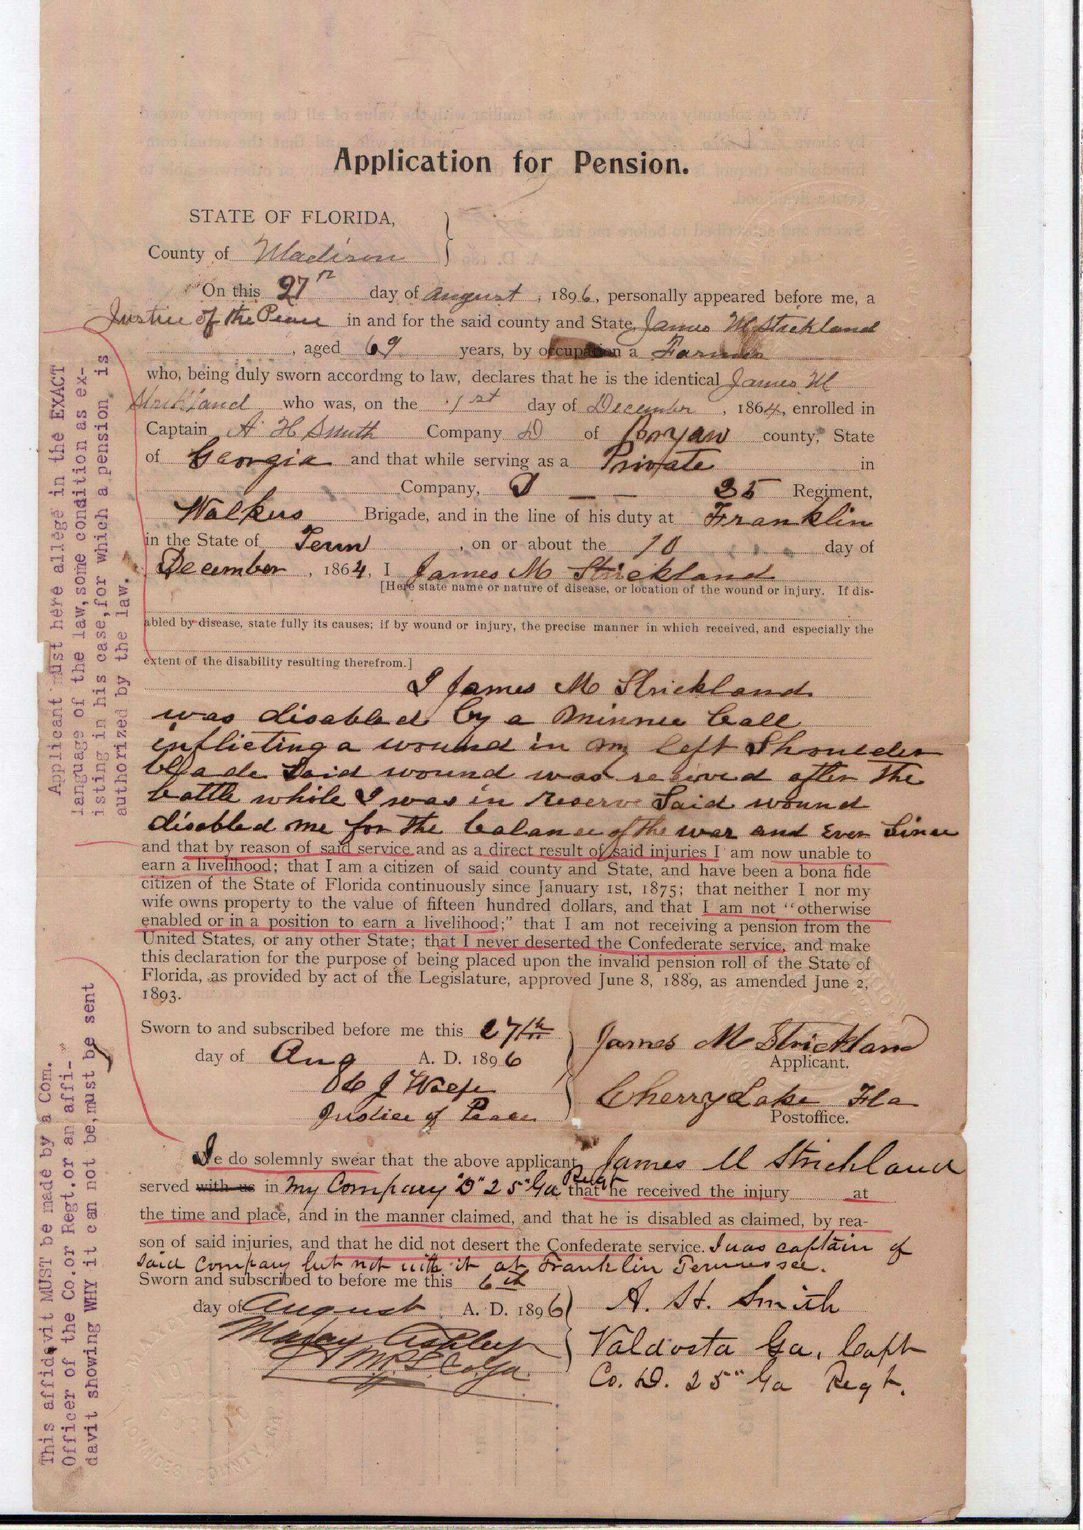 Application for Pension.
STATE OF FLORIDA,
County of Madison
On this 27th day of August, 1896, personally appeared before me, a
Justice of the Peace in and for the said county and State James M Strickland
, aged 69 years, by occupation a Farmer
who, being duly sworn according to law, declares that he is the identical James M
Strickland who was, on the 1st day of December, 1864, enrolled in
Captain A H Smith Company D of Bryan county, State
of Georgia and that while serving as a Private in
Company, D 25 Regiment,
Walkers Brigade, and in the line of his duty at Franklin
in the State of Tenn, on or about the 10 day of
December, 1864, I James M Strickland
[Here state name or nature of disease, or location of the wound or injury. If dis-
abled by disease, state fully its causes; if by wound or injury, the precise manner in which received, and especially the
extent of the disability resulting therefrom.]
I James M Strickland
was disabled by a minnie ball
inflicting a wound in my left Shoulder
blade Said wound was received after the
battle while I was in reserve Said wound
disabled me for the balance of the war and Ever Since
and that by reason of said service and as a direct result of said injuries I am now unable to
earn a livelihood; that I am a citizen of said county and State, and have been a bona fide
citizen of the State of Florida continuously since January 1st, 1875; that neither I nor my
wife owns property to the value of fifteen hundred dollars, and that I am not "otherwise
enabled or in a position to earn a livelihood;" that I am not receiving a pension from the
United States, or any other State; that I never deserted the Confederate service, and make
this declaration for the purpose of being placed upon the invalid pension roll of the State of
Florida, as provided by act of the Legislature, approved June 8, 1889, as amended June 2,
1893.
Sworn to and subscribed before me this 27th
day of Aug A. D. 1896
Justice of Peace
James M Strickland
Applicant.
Cherry Lake Fla
Postoffice.
I do solemnly swear that the above applicant James M Strickland
served with us in my Company "D" 25" Ga Regt that he received the injury at
the time and place, and in the manner claimed, and that he is disabled as claimed, by rea-
son of said injuries, and that he did not desert the Confederate service. I was captain of
Said Company but not with it at Franklin Tennessee.
Sworn and subscribed to before me this 6th
day of August A. D. 1896
A. H. Smith
Valdosta Ga, Capt
Co. D. 25" Ga Regt.
Applicant must here allege in the EXACT
language of the law, some condition as ex-
isting in his case, for which a pension is
authorized by the law.
This affidavit MUST be made by a Com.
Officer of the Co. or Regt. or an affi-
davit showing WHY it can not be, must be sent